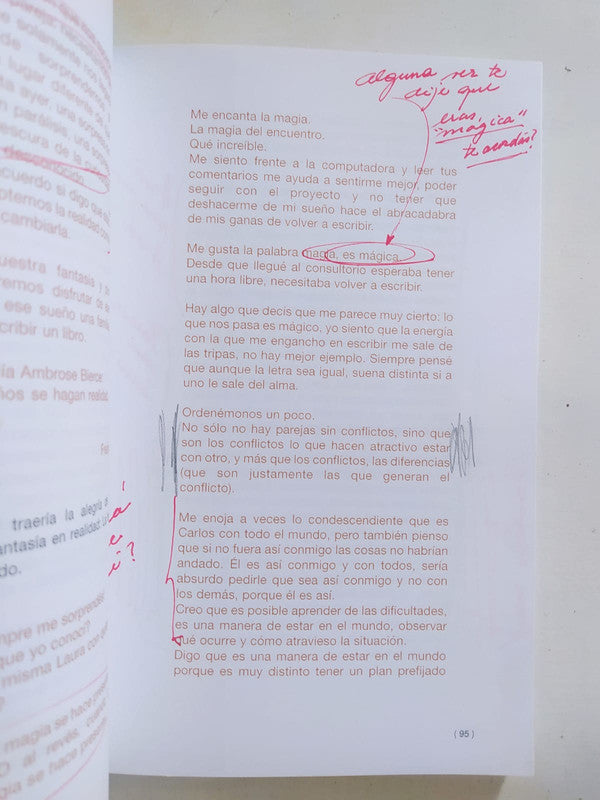 alguna vez te
dije que
eras
"mágica"
te acordás?
Me encanta la magia.
La magia del encuentro.
Qué increíble.
Me siento frente a la computadora y leer tus
comentarios me ayuda a sentirme mejor, poder
seguir con el proyecto y no tener que
deshacerme de mi sueño hace el abracadabra
de mis ganas de volver a escribir.
Me gusta la palabra magia, es mágica.
Desde que llegué al consultorio esperaba tener
una hora libre, necesitaba volver a escribir.
Hay algo que decís que me parece muy cierto: lo
que nos pasa es mágico, yo siento que la energía
con la que me engancho en escribir me sale de
las tripas, no hay mejor ejemplo. Siempre pensé
que aunque la letra sea igual, suena distinta si a
uno le sale del alma.
Ordenémonos un poco.
No sólo no hay parejas sin conflictos, sino que
son los conflictos lo que hacen atractivo estar
con otro, y más que los conflictos, las diferencias
(que son justamente las que generan el
conflicto).
Me enoja a veces lo condescendiente que es
Carlos con todo el mundo, pero también pienso
que si no fuera así conmigo las cosas no habrían
andado. Él es así conmigo y con todos, sería
absurdo pedirle que sea así conmigo y no con
los demás, porque él es así.
Creo que es posible aprender de las dificultades,
es una manera de estar en el mundo, observar
qué ocurre y cómo atravieso la situación.
Digo que es una manera de estar en el mundo
porque es muy distinto tener un plan prefijado
( 95 )
solamente nos
sorprendemos
lugar diferente
ayer, una
parálisis, una
de la
desconocido.
acuerdo si digo que
la realidad
cambiarla.
nuestra fantasía y
disfrutar de
ese sueño una
escribir un libro.
Ambrose Bierce:
se hagan realidad
traería la alegría
fantasía en realidad
me sorprender
que yo conocí?
misma Laura con
magia se hace
al revés,
se hace